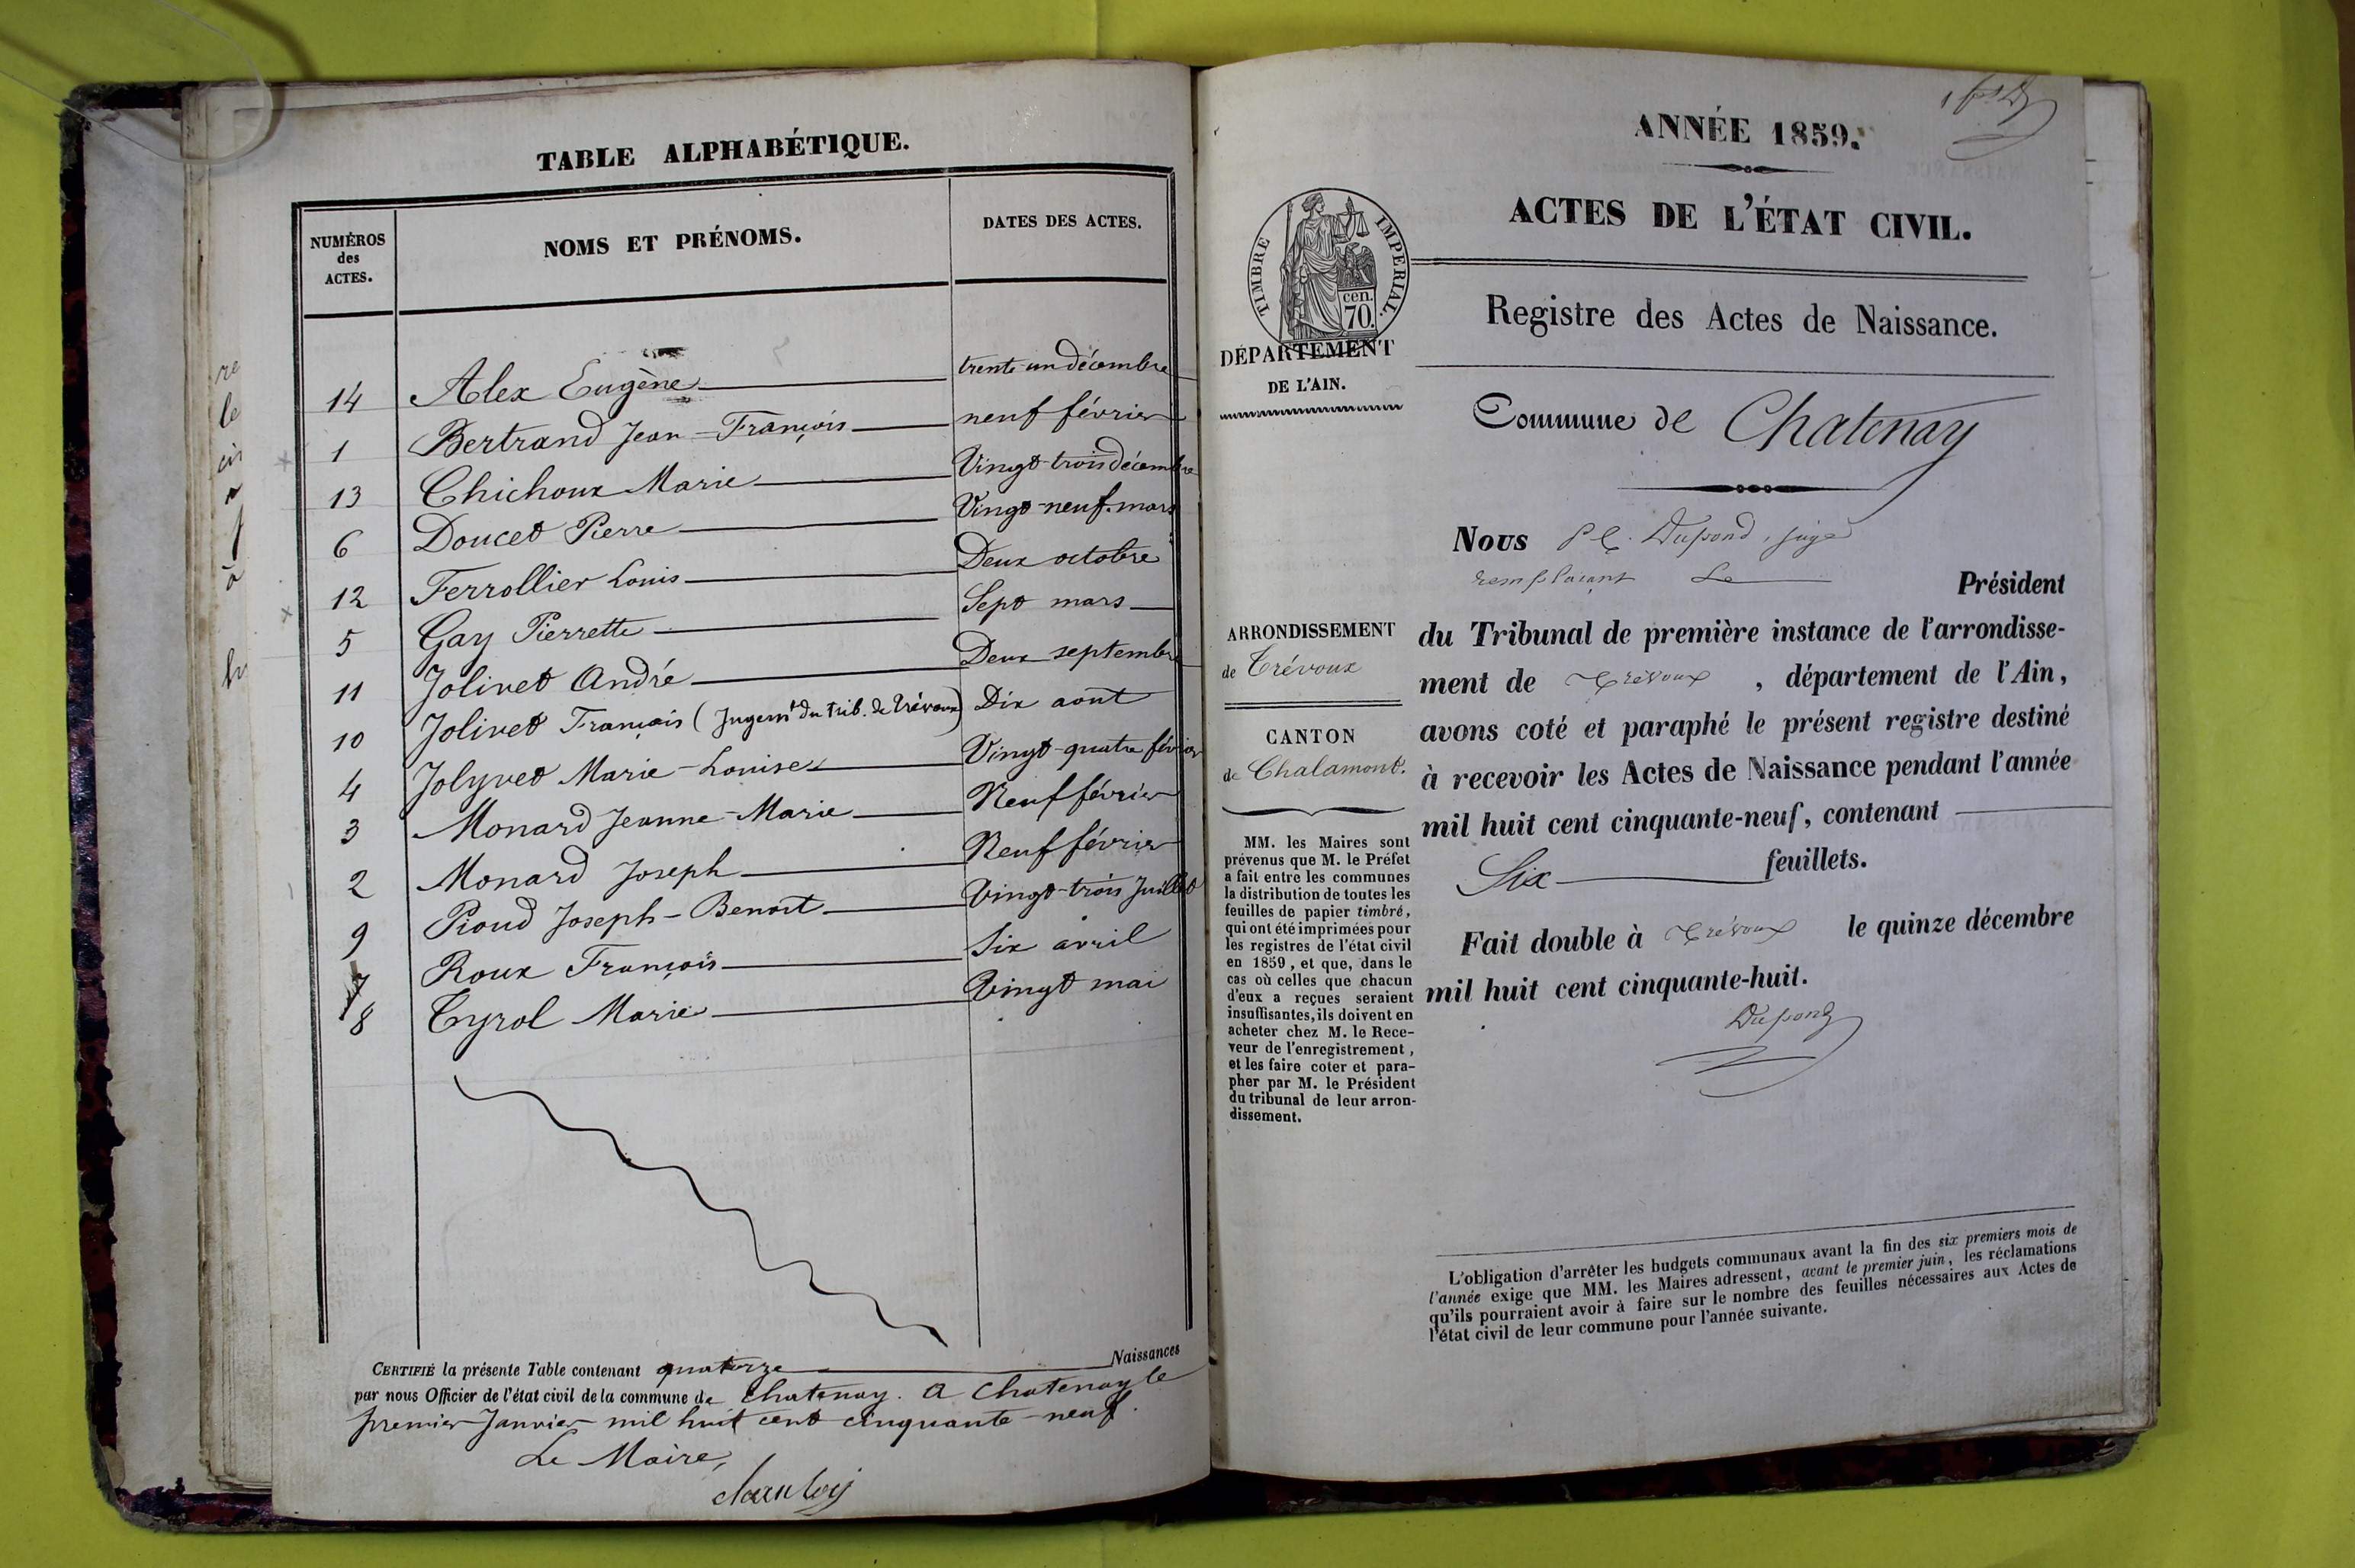 TABLE ALPHABÉTIQUE.
NUMÉROS
des
ACTES.
NOMS ET PRÉNOMS.
DATES DES ACTES.
14 Alex Eugène trente-un décembre
1 Bertrand Jean-François neuf février
13 Chichoux Marie Vingt-trois décembre
6 Doucet Pierre Vingt-neuf mars
12 Ferrollier Louis Deux octobre
5 Gay Pierrette Sept mars
11 Jolivet André Deux septembre
10 Jolivet François (Jugemt du Trib. de Trévoux) Dix août
4 Jolyvet Marie-Louise Vingt-quatre février
3 Monard Jeanne-Marie Neuf février
2 Monard Joseph Neuf février
9 Pioud Joseph-Benoît Vingt-trois Juillet
7 Roux François Six avril
8 Tyrol Marie Vingt mai
CERTIFIÉ la présente Table contenant quatorze Naissances
par nous Officier de l'état civil de la commune de Chatenay. A Chatenay le
premier Janvier mil huit cent cinquante-neuf.
Le Maire,
ANNÉE 1859.
ACTES DE L'ÉTAT CIVIL.
TIMBRE IMPERIAL.
cen.
70.
DÉPARTEMENT
DE L'AIN.
Registre des Actes de Naissance.
Commune de Chatenay
Nous Dupond, juge
remplaçant Le Président
du Tribunal de première instance de l'arrondisse-
ment de Trévoux, département de l'Ain,
avons coté et paraphé le présent registre destiné
à recevoir les Actes de Naissance pendant l'année
mil huit cent cinquante-neuf, contenant
Six feuillets.
Fait double à Trévoux le quinze décembre
mil huit cent cinquante-huit.
Dupond
ARRONDISSEMENT
de Trévoux
CANTON
de Chalamont.
MM. les Maires sont
prévenus que M. le Préfet
a fait entre les communes
la distribution de toutes les
feuilles de papier timbré,
qui ont été imprimées pour
les registres de l'état civil
en 1859, et que, dans le
cas où celles que chacun
d'eux a reçues seraient
insuffisantes, ils doivent en
acheter chez M. le Rece-
veur de l'enregistrement,
et les faire coter et para-
pher par M. le Président
du tribunal de leur arron-
dissement.
L'obligation d'arrêter les budgets communaux avant la fin des six premiers mois de
l'année exige que MM. les Maires adressent, avant le premier juin, les réclamations
qu'ils pourraient avoir à faire sur le nombre des feuilles nécessaires aux Actes de
l'état civil de leur commune pour l'année suivante.